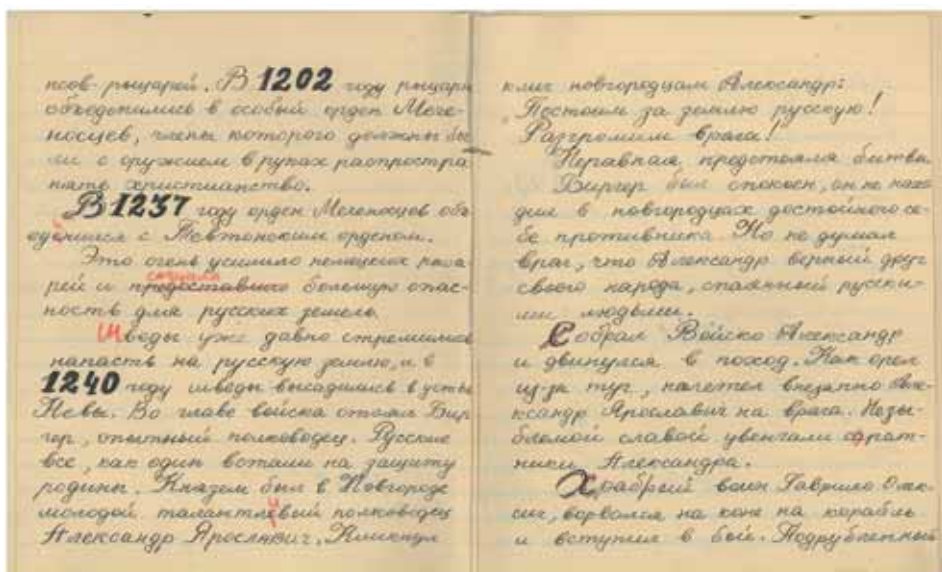 псов-рыцарей. В 1202 году рыцари
объединились в особый орден Мече-
носцев, члены которого должны бы
ли с оружием в руках распростра
нять христианство.
В 1237 году орден Меченосцев объ-
единился с Тевтонским орденом.
Это очень усилило немецких рыца-
рей и предоставило большую опас-
создало
ность для русских земель.
Шведы уже давно стремились
напасть на русскую землю, и в
1240 году шведы высадились в устье
Невы. Во главе войска стоял Бир-
гер, опытный полководец. Русские
все, как один встали на защиту
родины. Князем был в Новгороде
молодой талантливый полководец
Александр Ярославич. Кликнул
клич новгородцам Александр:
Постоим за землю русскую!
Разгромим врага!
Неравная предстояла битва.
Биргер был спокоен, он не нахо-
дил в новгородцах достойного се-
бе противника. Но не думал
враг, что Александр верный друг
своего народа, спаянный русски-
ми людьми.
Собрал Войско Александр
и двинулся в поход. Как орел
из-за туч, налетел внезапно Але-
ксандр Ярославич на врага. Незы-
блемой славой увенчали с рат-
ники Александра.
Храбрый воин Гаврило Олек-
сич, ворвался на коне на корабль
и вступил в бой. Подрубленный